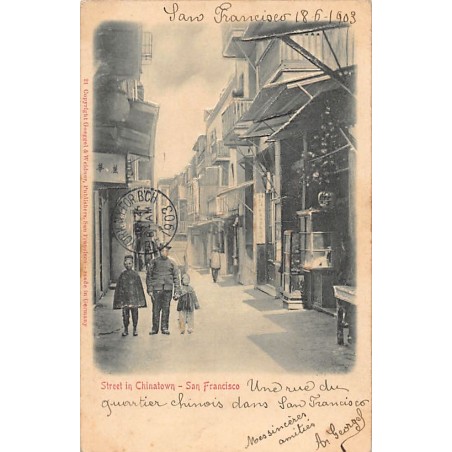 San Francisco 18-6-1903
Street in Chinatown – San Francisco Une rue du
quartier chinois dans San Francisco
Mes sincères
amitiés
Georges
21 Copyright Goeggel & Weidner, Publishers, San Francisco - made in Germany
1903